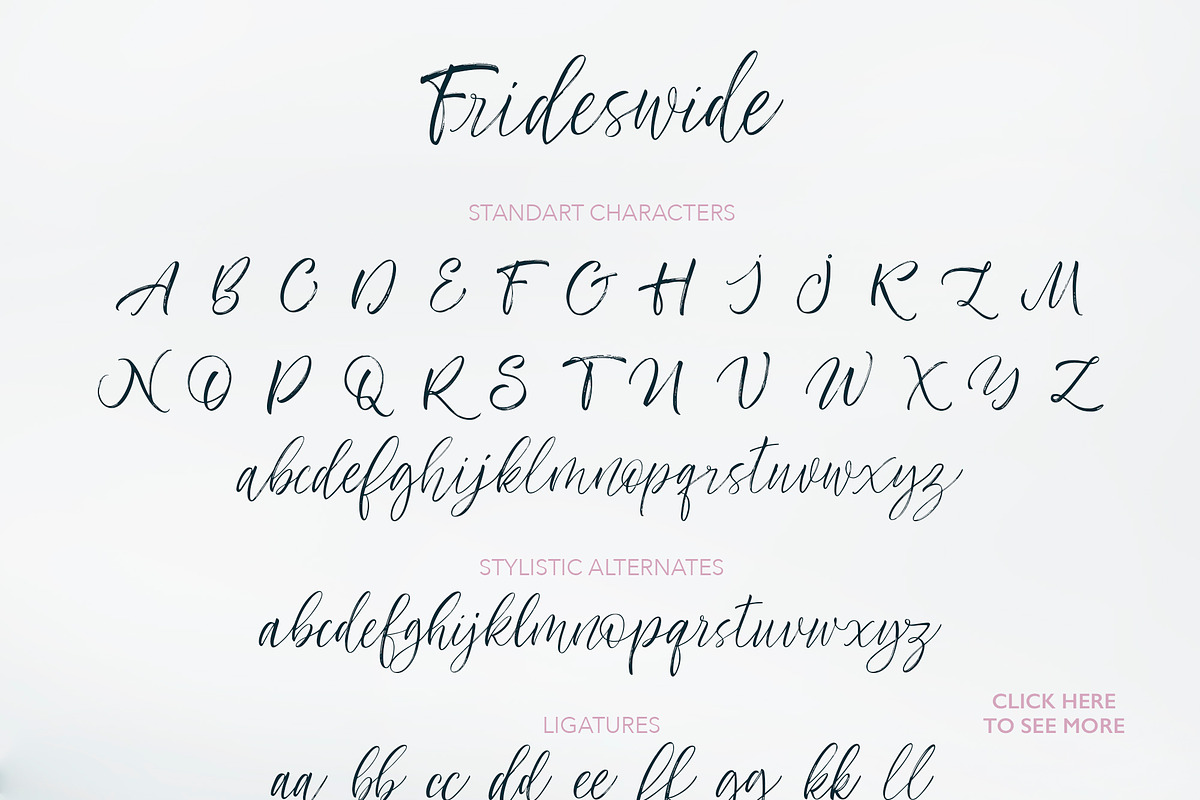 Frideswide
STANDART CHARACTERS
A B C D E F G H I J K L M
N O P Q R S T U V W X Y Z
abcdefghijklmnopqrstuvwxyz
STYLISTIC ALTERNATES
abcdefghijklmnopqrstuvwxyz
CLICK HERE
TO SEE MORE
LIGATURES
aa bb cc dd ee ff gg kk ll